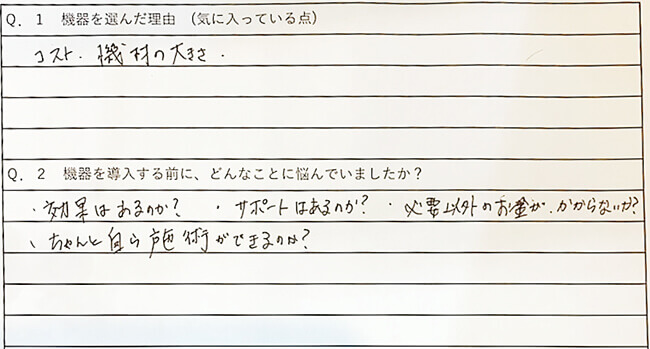 Q．1　機器を選んだ理由　(気に入っている点)
コスト．機材の大きさ．
Q．2　機器を導入する前に、どんなことに悩んでいましたか？
・効果はあるのか？　・サポートはあるのか？　・必要以外のお金が、かからないか？
、ちゃんと自ら施術ができるのか？